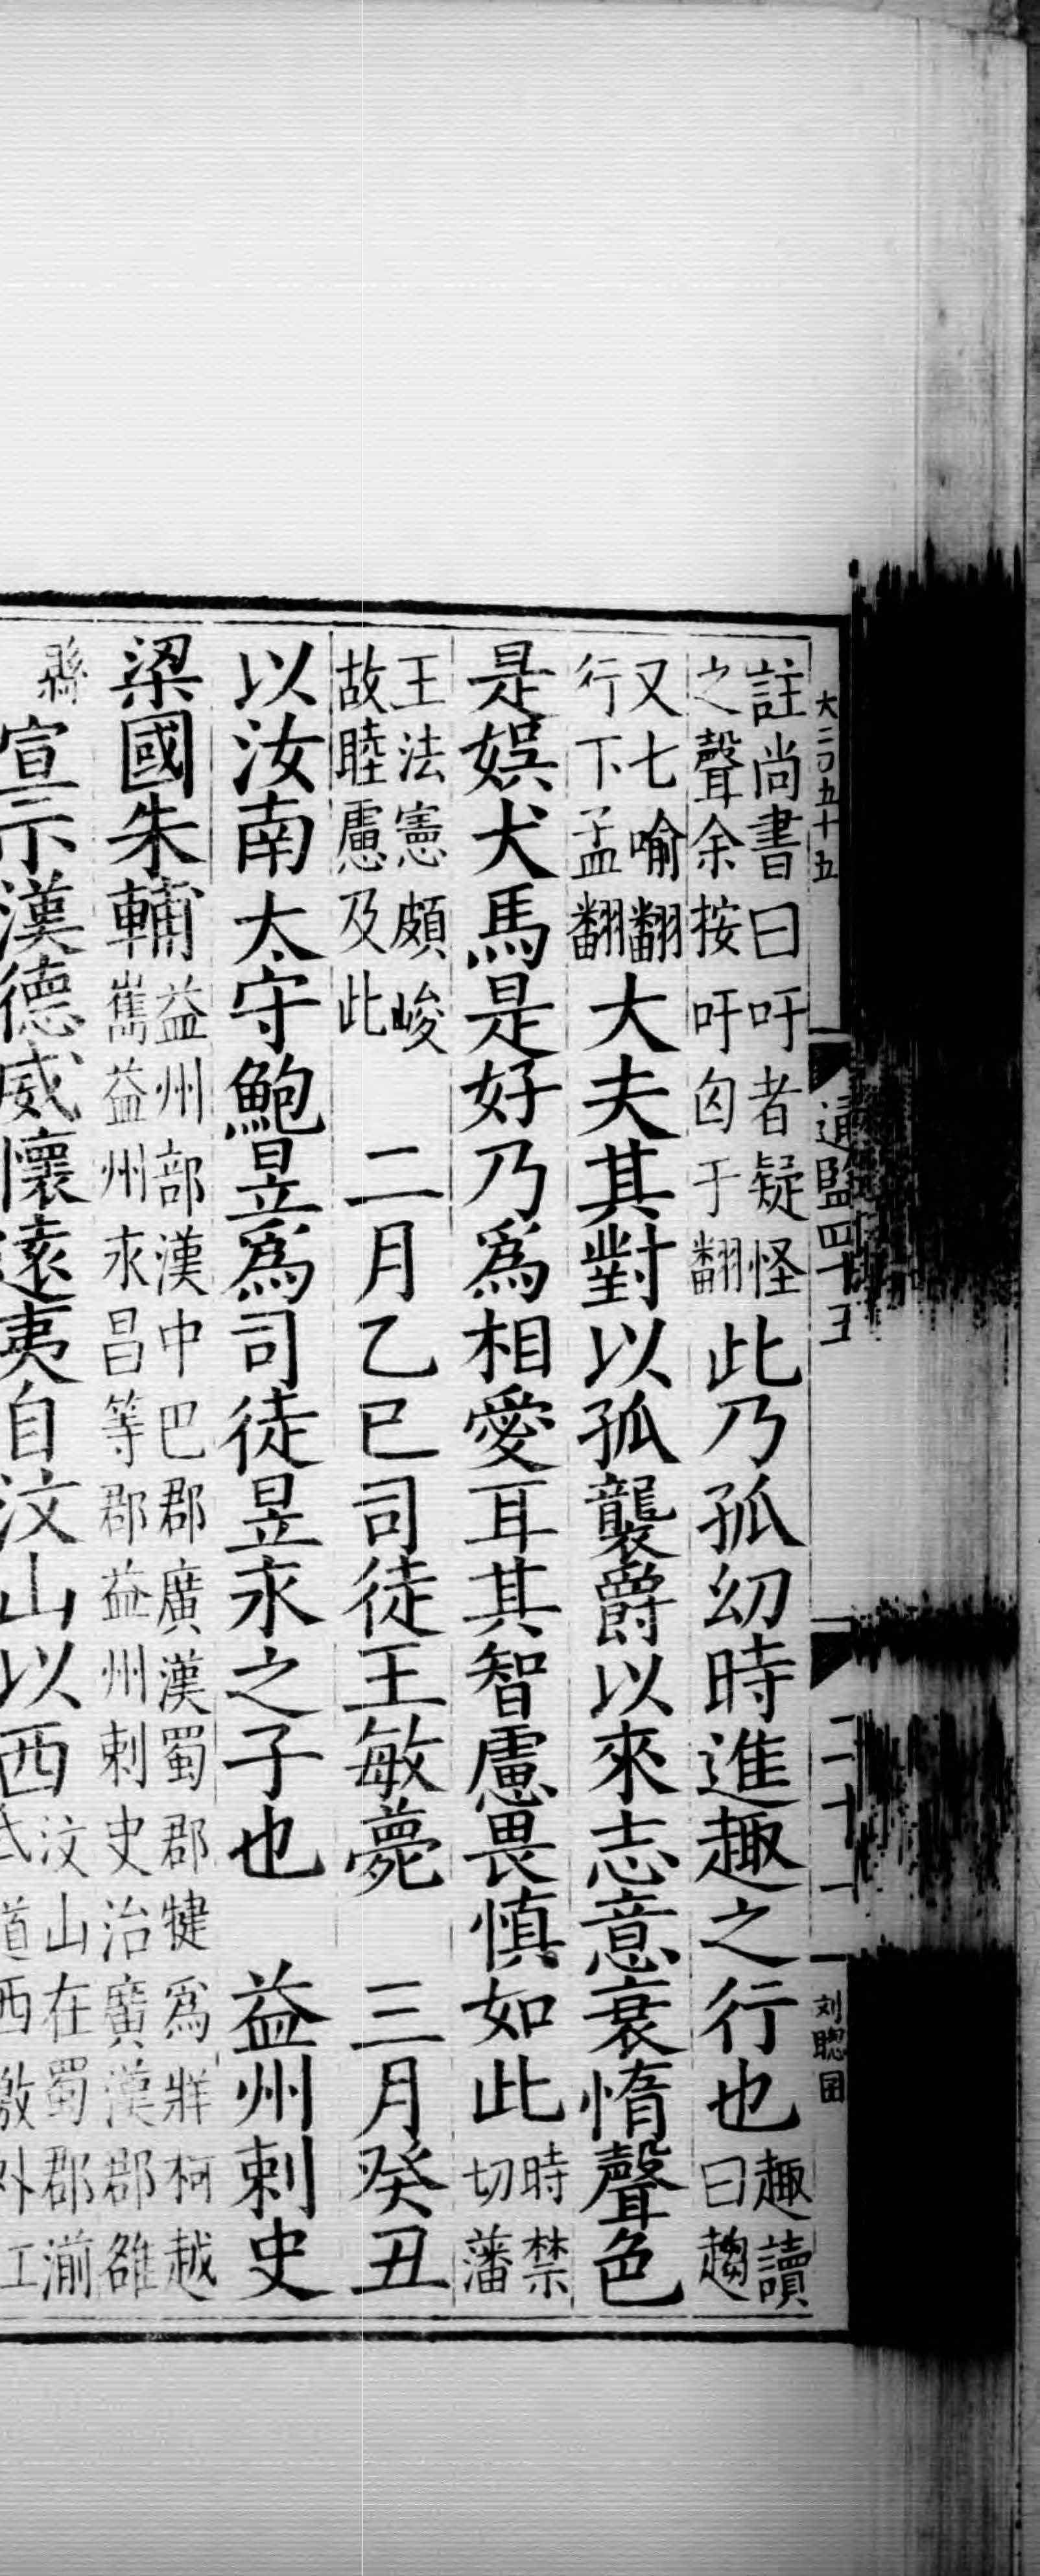 大二〇五十五
通監四十五
二十一
刘聦
註尚書曰吁者疑怪
之聲余按吁匈于翻
此乃孤幼時進趣之行也
趣讀
曰趨
又七喻翻
行下孟翻
大夫其對以孤襲爵以來志意衰惰聲色
是娯犬馬是好乃爲相愛耳其智慮畏慎如此
時禁
切藩
王法憲頗峻
故睦慮及此
二月乙巳司徒王敏薨　三月癸丑
以汝南太守鮑昱爲司徒昱永之子也　益州刺史
梁國朱輔
益州部漢中巴郡廣漢蜀郡犍爲牂柯越
嶲益州永昌等郡益州刺史治廣漢郡雒
縣
宣示漢德威懷遠夷自汶山以西
汶山在蜀郡湔
氐道西徼外江